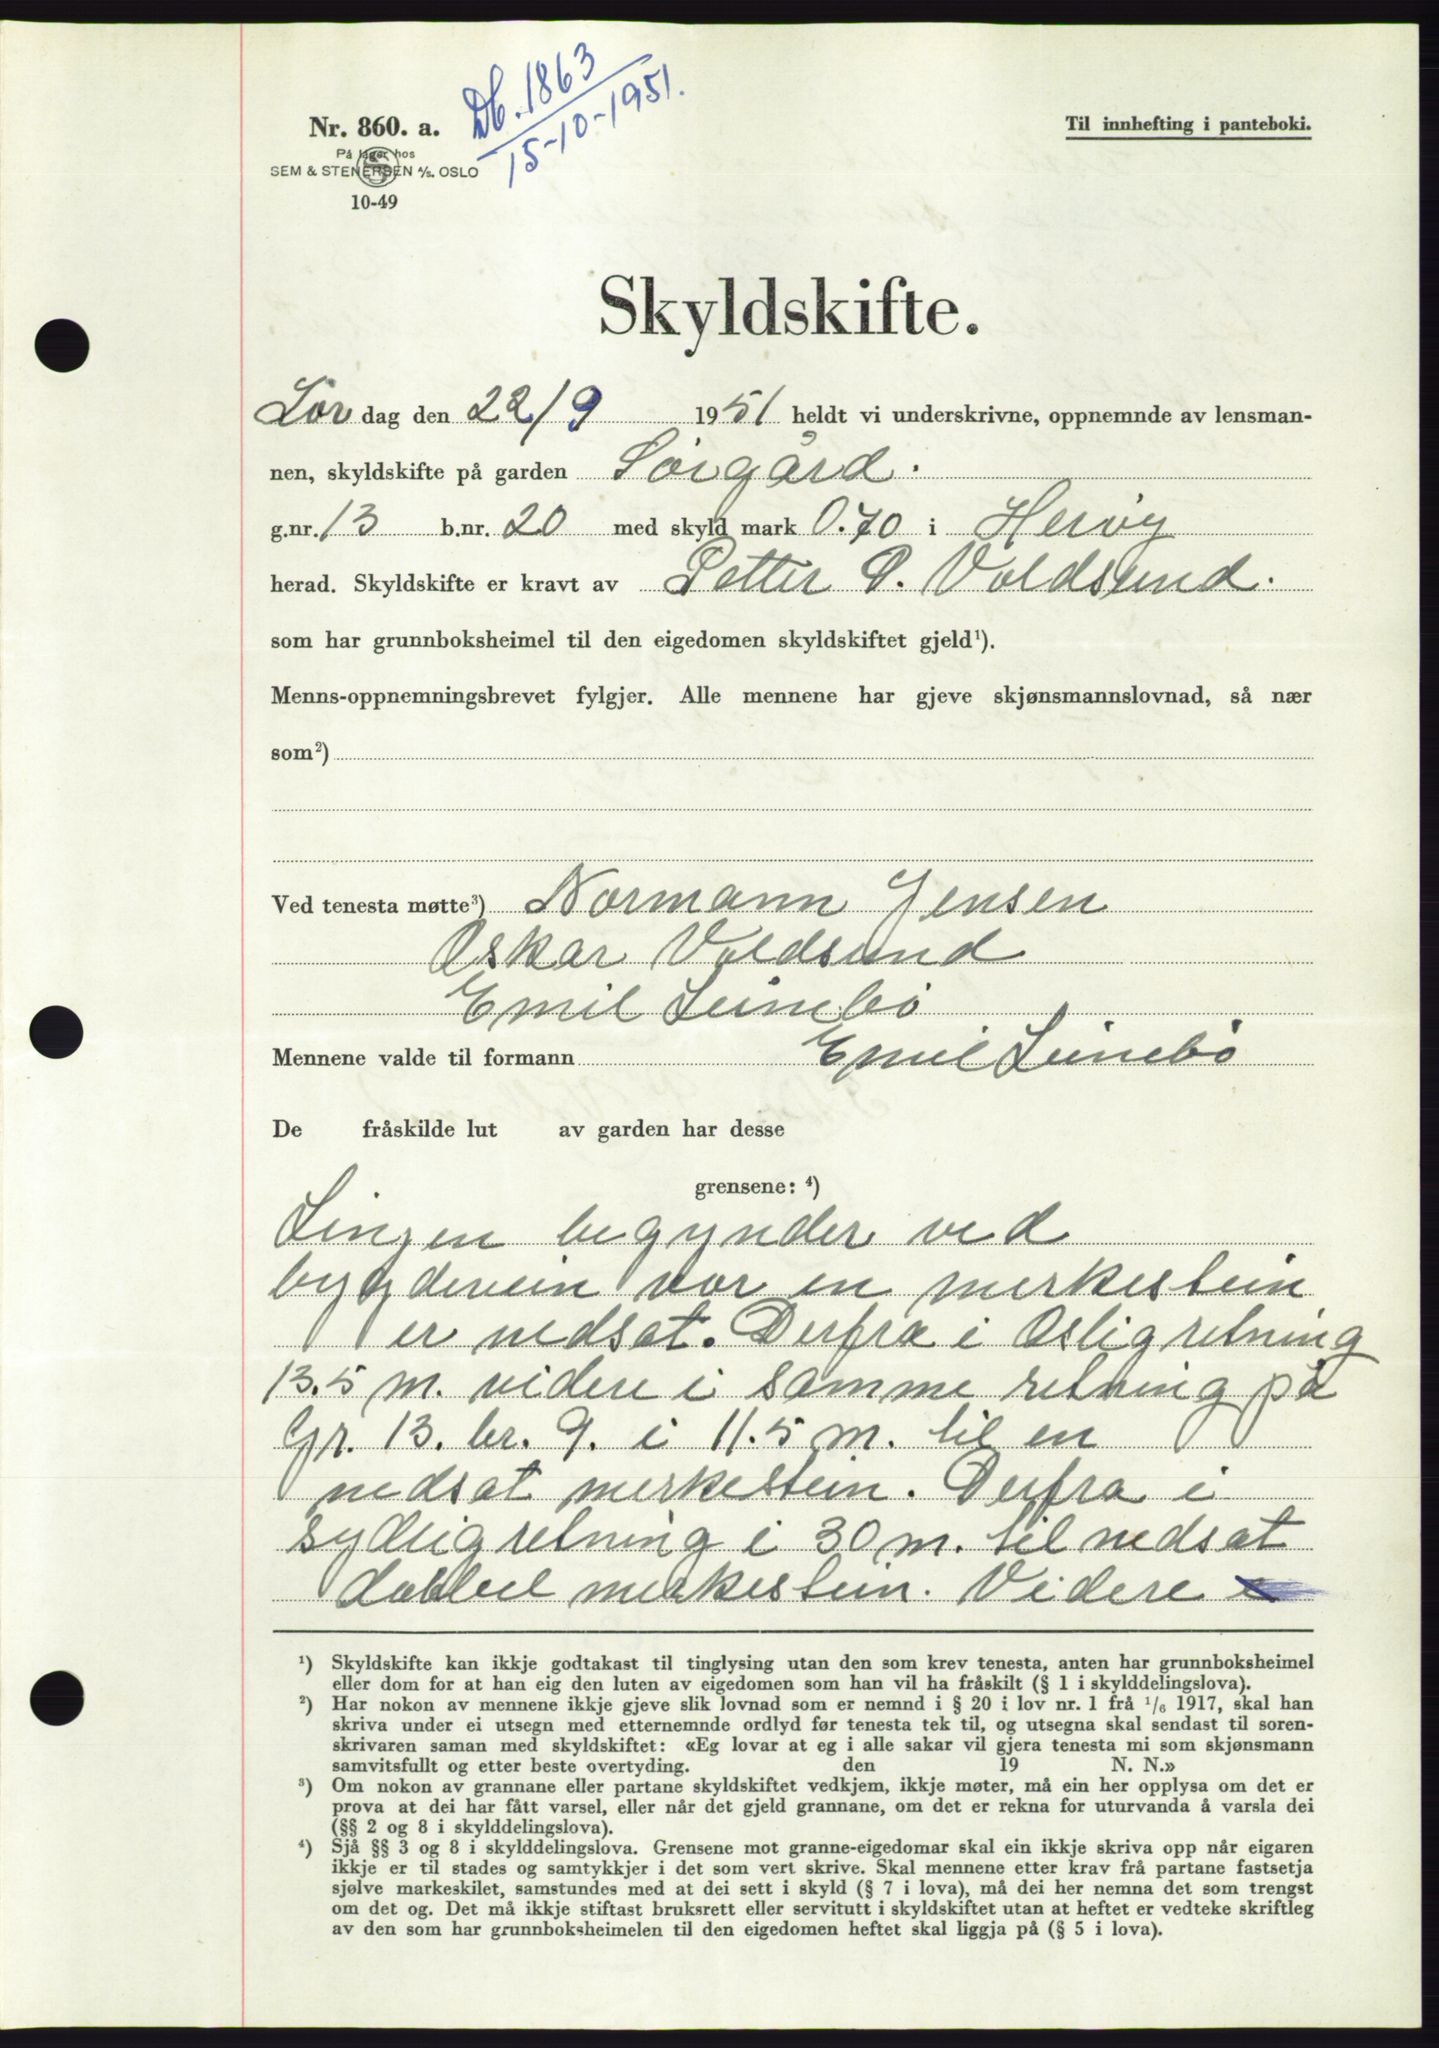 Db. 1863
15-10-1951.
Nr. 860. a.
Til innhefting i panteboki.
På lager hos
SEM & STENERSEN A/S. OSLO
10-49
Skyldskifte.
Lør dag den 22/9 1951 heldt vi underskrivne, oppnemnde av lensman-
nen, skyldskifte på garden Sørgård.
g.nr. 13 b.nr. 20 med skyld mark 0.70 i Herøy
herad. Skyldskifte er kravt av Petter P. Voldsund.
som har grunnboksheimel til den eigedomen skyldskiftet gjeld¹).
Menns-oppnemningsbrevet fylgjer. Alle mennene har gjeve skjønsmannslovnad, så nær
som²)
Ved tenesta møtte³) Normann Jensen
Oskar Voldsund
Emil Leinebø
Mennene valde til formann Emil Leinebø
De fråskilde lut av garden har desse
grensene: ⁴)
Linjen begynder ved
bygdevein vor en merkestein
er nedsat. Derfra i Øslig retning
13.5 m. videre i samme retning på
Gr. 13. br. 9. i 11.5 m. til en
nedsat merkestein. Derfra i
sydlig retning i 30 m. til nedsat
dobbel merkestein. Videre
¹) Skyldskifte kan ikkje godtakast til tinglysing utan den som krev tenesta, anten har grunnboksheimel
eller dom for at han eig den luten av eigedomen som han vil ha fråskilt (§ 1 i skylddelingslova).
²) Har nokon av mennene ikkje gjeve slik lovnad som er nemnd i § 20 i lov nr. 1 frå ¹/₆ 1917, skal han
skriva under ei utsegn med etternemnde ordlyd før tenesta tek til, og utsegna skal sendast til soren-
skrivaren saman med skyldskiftet: «Eg lovar at eg i alle sakar vil gjera tenesta mi som skjønsmann
samvitsfullt og etter beste overtyding. den 19 N. N.»
³) Om nokon av grannane eller partane skyldskiftet vedkjem, ikkje møter, må ein her opplysa om det er
prova at dei har fått varsel, eller når det gjeld grannane, om det er rekna for uturvanda å varsla dei
(§§ 2 og 8 i skylddelingslova).
⁴) Sjå §§ 3 og 8 i skylddelingslova. Grensene mot granne-eigedomar skal ein ikkje skriva opp når eigaren
ikkje er til stades og samtykkjer i det som vert skrive. Skal mennene etter krav frå partane fastsetja
sjølve markeskilet, samstundes med at dei sett i skyld (§ 7 i lova), må dei her nemna det som trengst
om det og. Det må ikkje stiftast bruksrett eller servitutt i skyldskiftet utan at heftet er vedteke skriftleg
av den som har grunnboksheimelen til den eigedomen heftet skal liggja på (§ 5 i lova).